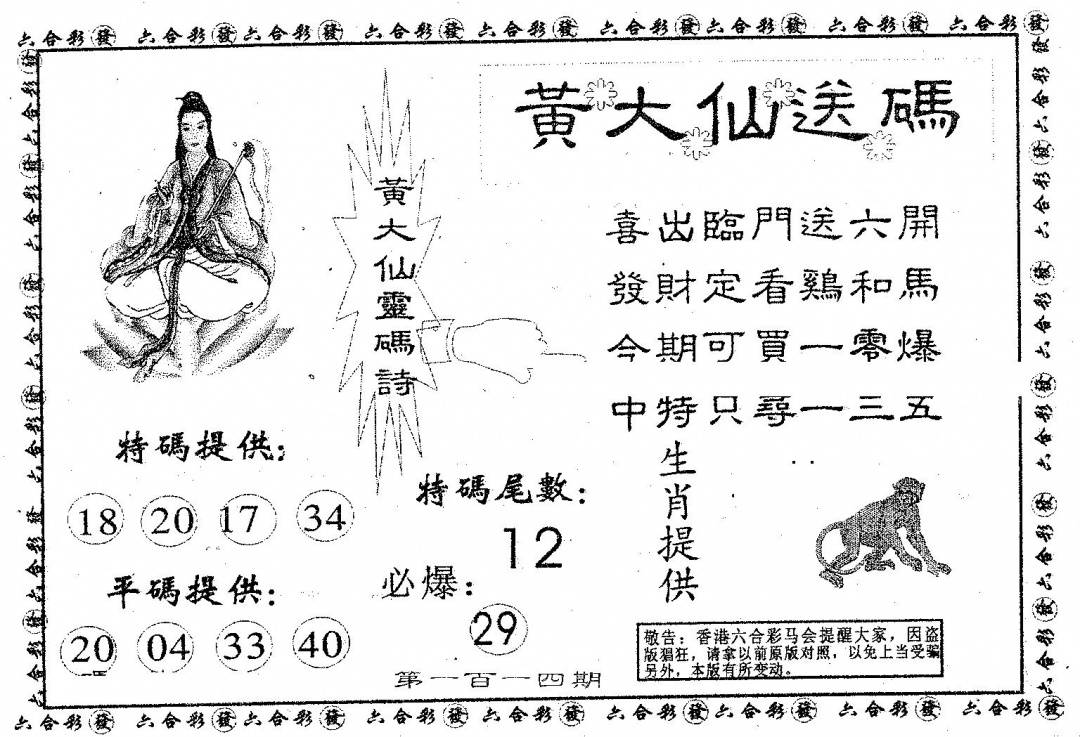 六合彩發 六合彩發六合彩發 六合彩發 六合彩發 六合彩發六合彩發 六合彩發 六合彩發
黃大仙送碼
黃大仙靈碼詩
喜出臨門送六開
發財定看鷄和馬
今期可買一零爆
中特只尋一三五
特碼提供:
18 20 17 34
平碼提供:
20 04 33 40
特碼尾數:
12
必爆:
29
生肖提供
敬告:香港六合彩马会提醒大家,因盗
版猖狂,请拿以前原版对照,以免上当受骗
另外,本版有所变动。
第一百一四期
六合彩發 六合彩發六合彩發 六合彩發 六合彩發 六合彩發六合彩發 六合彩發 六合彩發